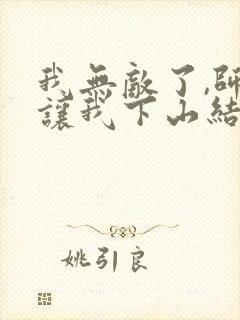 我無敵了,師
讓我下山結
姚引良